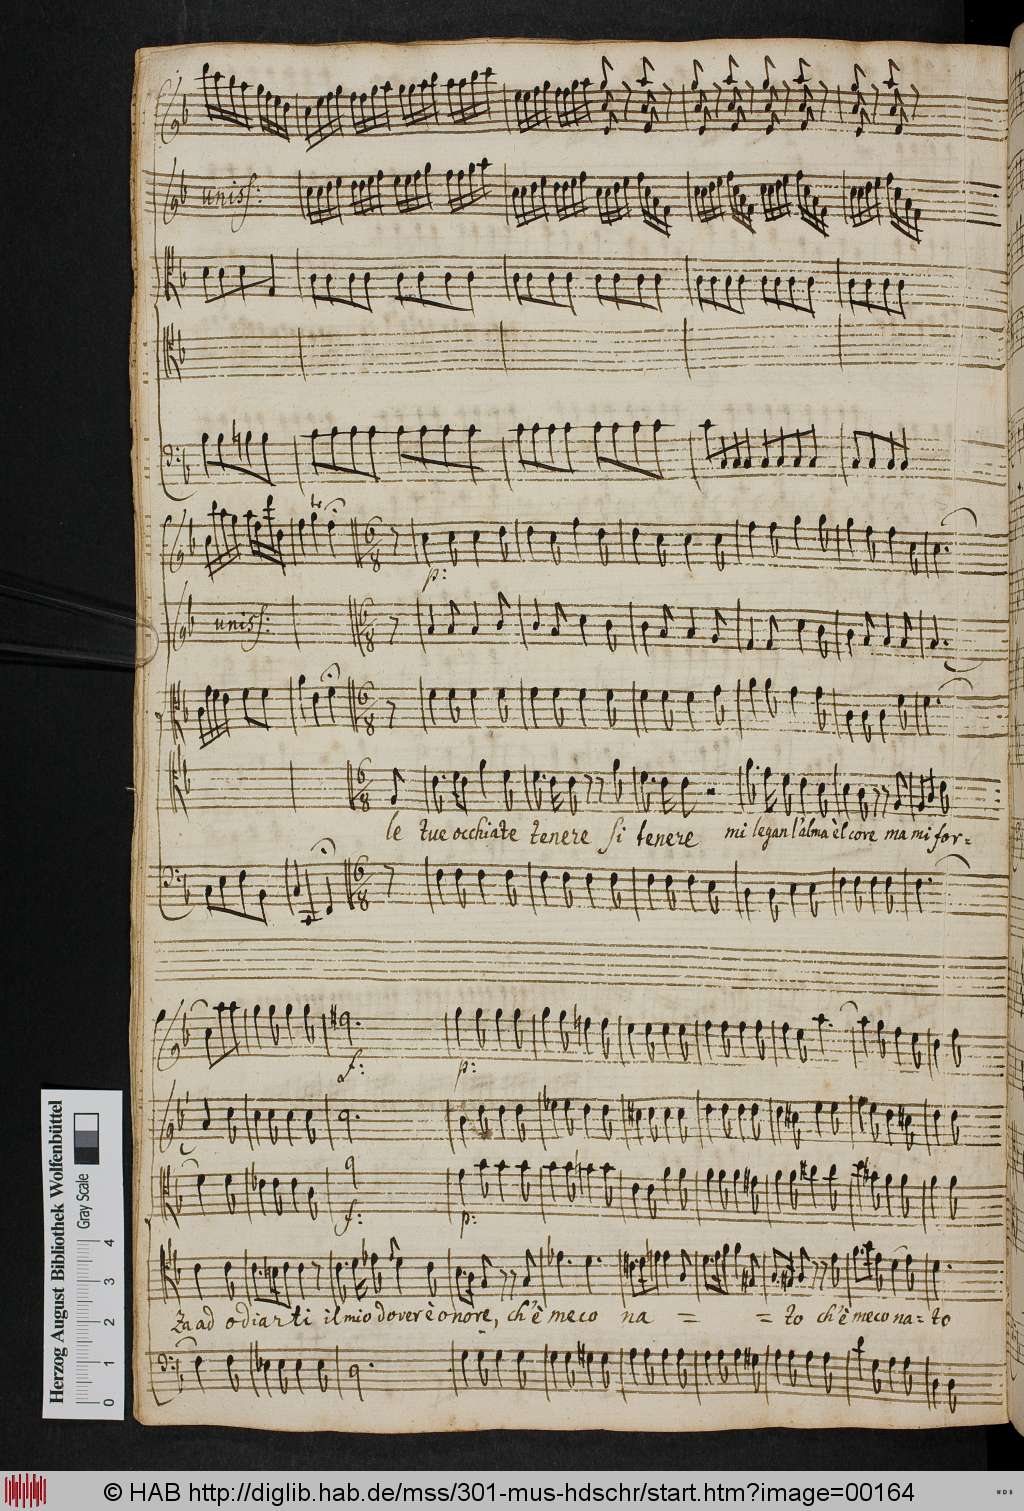 unisſ:
tr
p:
unisſ:
6/8
6/8
6/8
6/8
le tue occhiate tenere ſi tenere mi legan l'alma è'l core ma mi for=
6/8
f: p:
f: p:
za ad odiarti il mio dover è onore, ch'è meco na = = to ch'è meco na= to
Herzog August Bibliothek Wolfenbüttel
Gray Scale
0 1 2 3 4
© HAB http://diglib.hab.de/mss/301-mus-hdschr/start.htm?image=00164
WDB